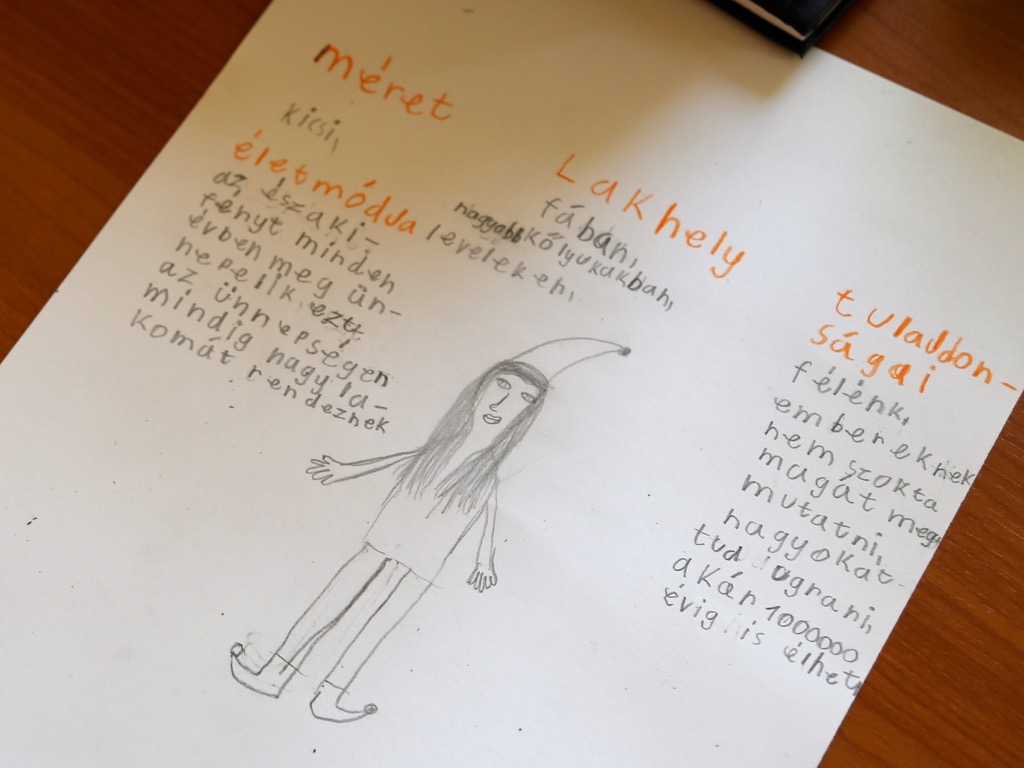 méret
kicsi,
életmódja
az északi-
fényt minden
évben meg ün-
neplik ezt
az ünnepségen
mindig nagy la-
komát rendeznek
Lakhely
fában,
nagyobb kőlyukakban,
leveleken,
tulajdon-
ságai
félénk,
embereknek
nem szokta
magát meg
mutatni,
nagyokat
tud ugrani,
akár 100000
évig is élhet,